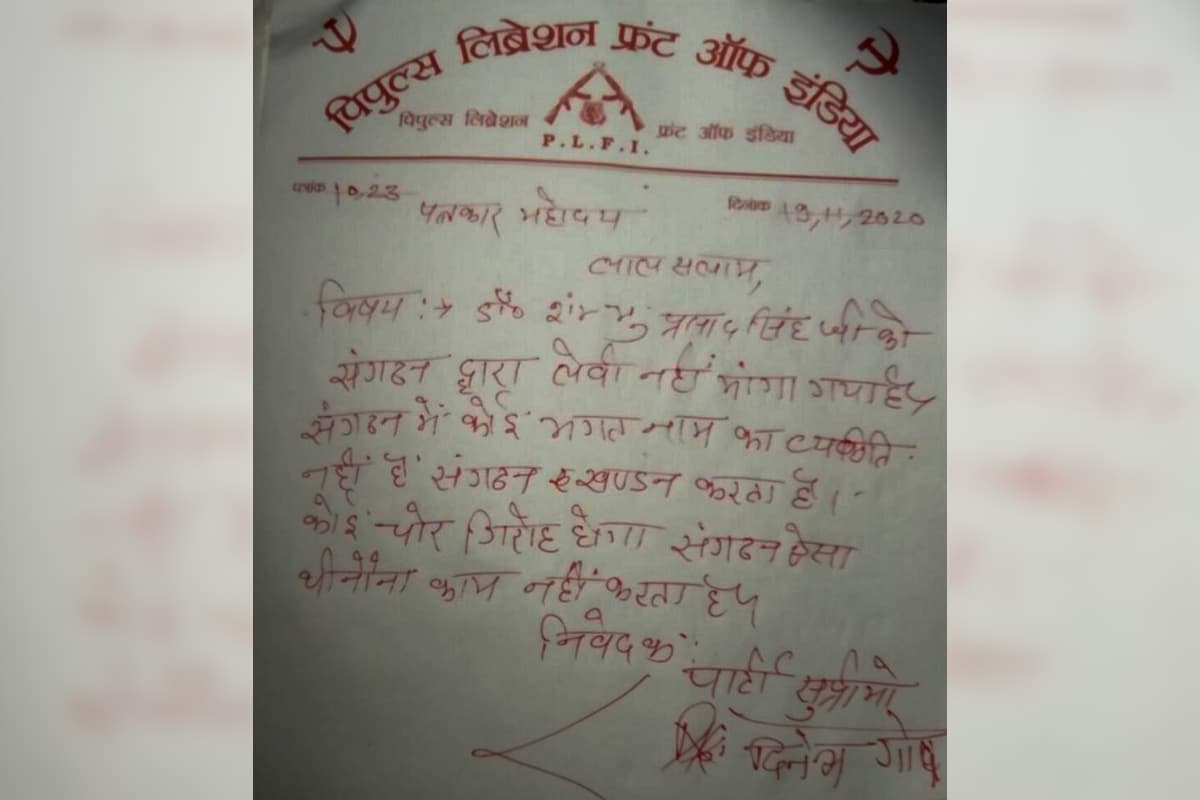 पिपुल्स लिब्रेशन फ्रंट ऑफ इंडिया
पिपुल्स लिब्रेशन फ्रंट ऑफ इंडिया
P.L.F.I.
पत्रांक 10,23 दिनांक 19,11,2020
पत्रकार महोदय
लाल सलाम,
विषय :→ डॉ० शंम्भु प्रसाद सिंह जी को
संगठन द्वारा लेवी नहीं मांगा गया है
संगठन में कोई भगत नाम का व्यक्तिति
नहीं है संगठन खण्डन करता है।
कोई चोर गिरोह होगा संगठन ऐसा
धीनौना काम नहीं करता है
निवेदक
पार्टी सुप्रीमो
दिनेश गोप